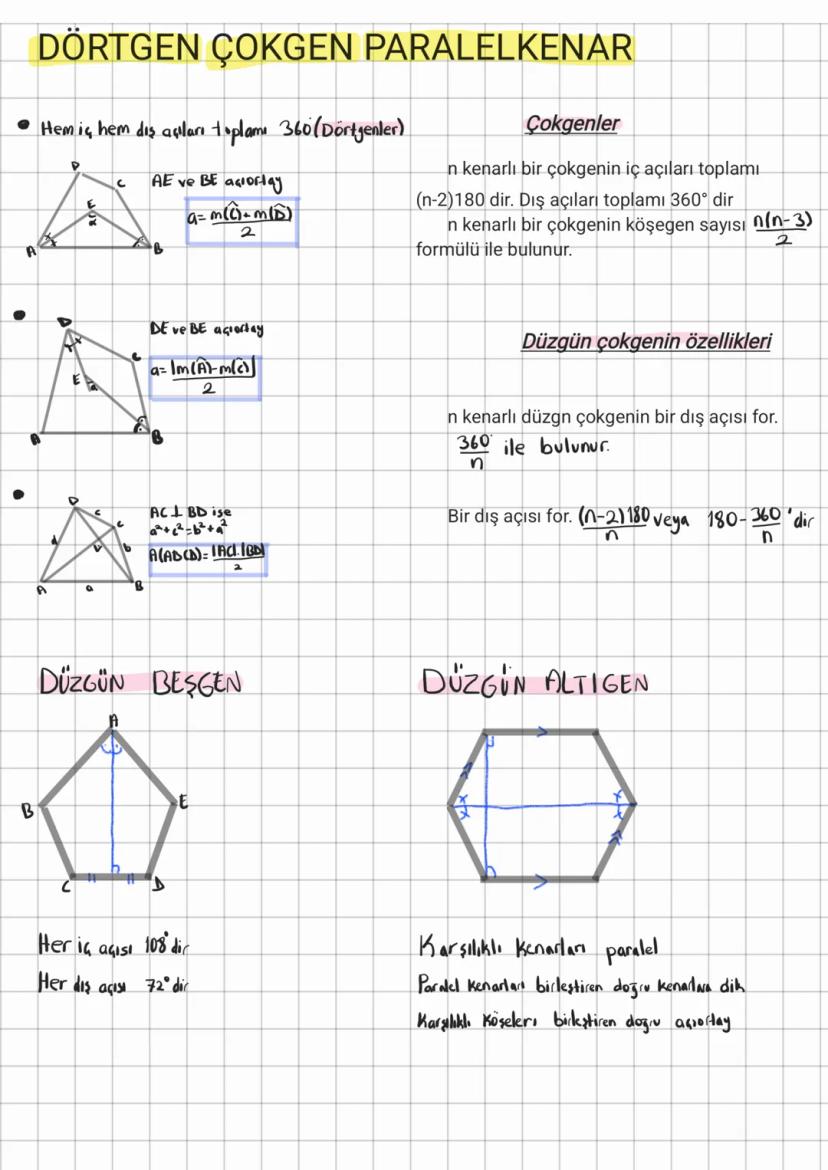 DÖRTGEN ÇOKGEN PARALELKENAR
Hem iç hem dış açıları toplamı 360° (Dörtgenler)
D
C
E
α
A
B
AE ve BE açıortay
a = m(Ĉ) + m(D̂) / 2
D
C
E
a
A
B
DE ve BE açıortay
a = |m(Â) - m(Ĉ)| / 2
D
c
C
d
b
A
a
B
AC ⊥ BD ise
a² + c² = b² + a²
A(ABCD) = |AC|.|BD| / 2
Çokgenler
n kenarlı bir çokgenin iç açıları toplamı
(n-2)180 dir. Dış açıları toplamı 360° dir
n kenarlı bir çokgenin köşegen sayısı n(n-3) / 2
formülü ile bulunur.
Düzgün çokgenin özellikleri
n kenarlı düzgn çokgenin bir dış açısı for.
360° / n ile bulunur.
Bir dış açısı for. (n-2)180 / n veya 180 - 360° / n 'dir
DÜZGÜN BEŞGEN
A
B
E
C
D
Her iç açısı 108° dir
Her dış açısı 72° dir
DÜZGÜN ALTIGEN
x
x
x
x
Karşılıklı kenarları paralel
Paralel kenarları birleştiren doğru kenarlara dik
Karşılıklı köşeleri birleştiren doğru açıortay